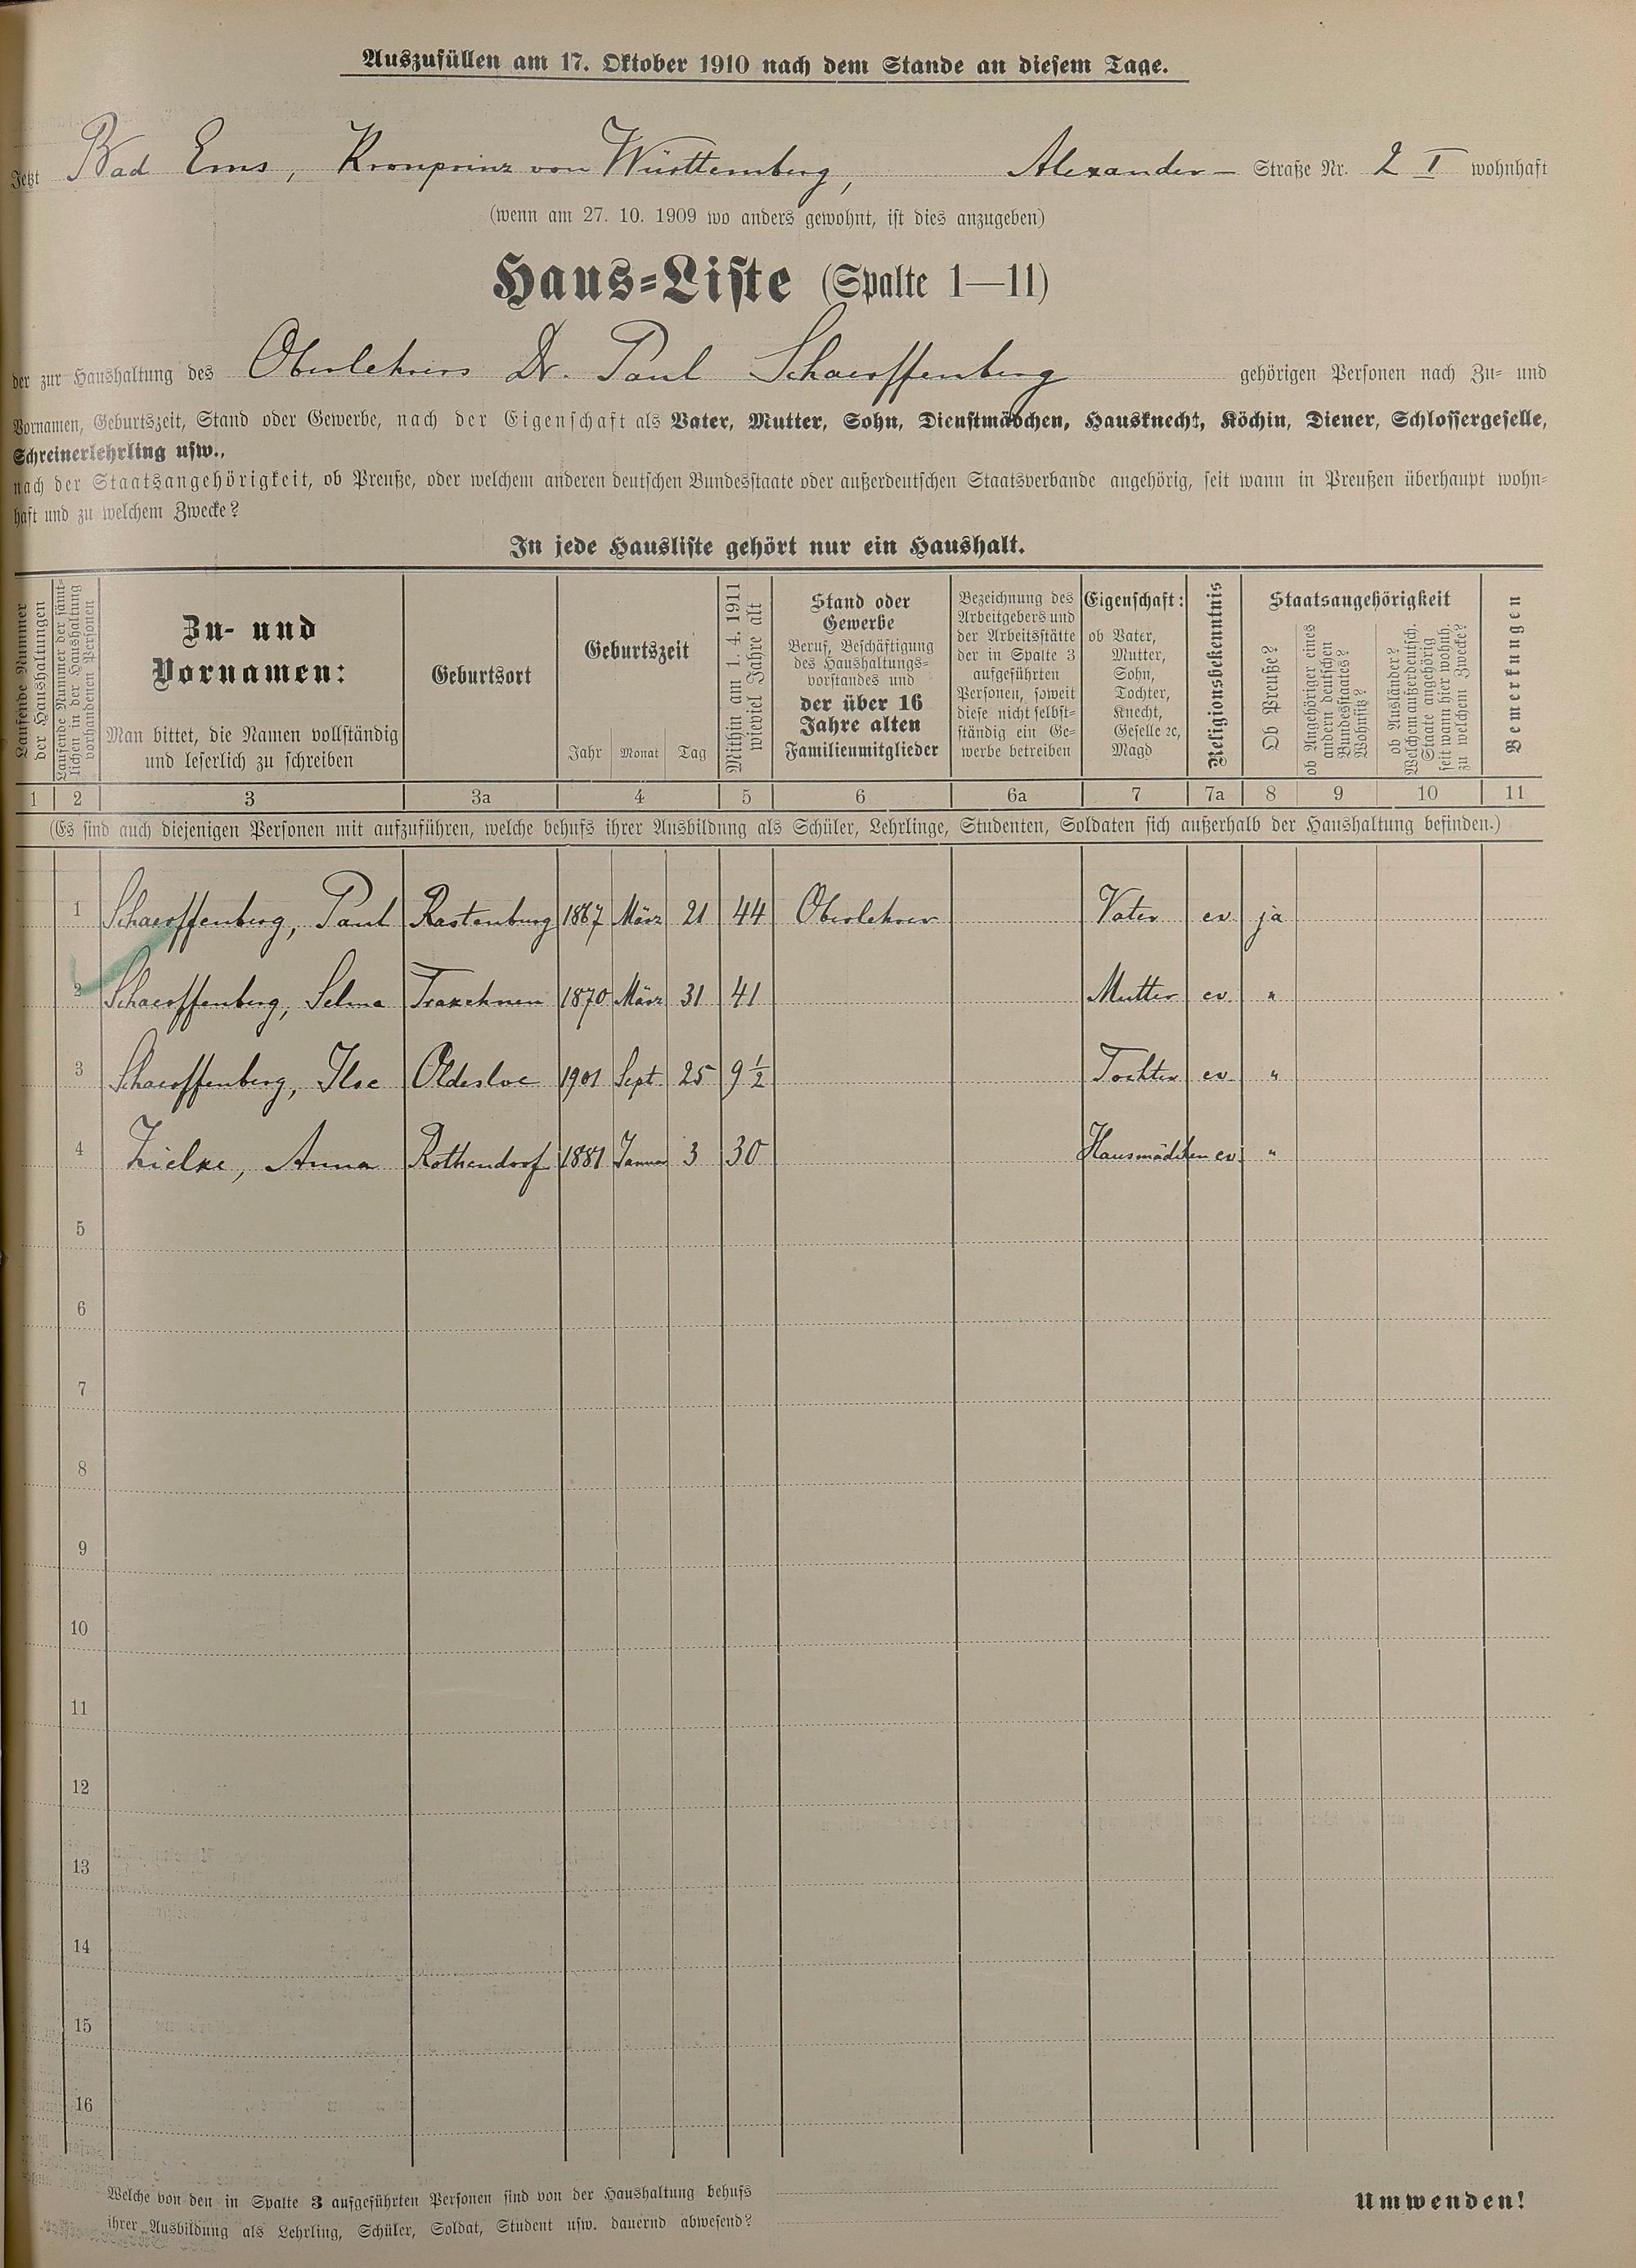 Auszufüllen am 17. Oktober 1910 nach dem Stande an diesem Tage.
Jetzt Bad Ems, Kronprinz von Württemberg, Alexander- Straße Nr. 2 I wohnhaft
(wenn am 27. 10. 1909 wo anders gewohnt, ist dies anzugeben)
Haus-Liste (Spalte 1—11)
der zur Haushaltung des Oberlehrers Dr. Paul Schaerffenberg gehörigen Personen nach Zu- und
Vornamen, Geburtszeit, Stand oder Gewerbe, nach der Eigenschaft als Vater, Mutter, Sohn, Dienstmädchen, Hausknecht, Köchin, Diener, Schlossergeselle,
Schreinerlehrling usw.,
nach der Staatsangehörigkeit, ob Preuße, oder welchem anderen deutschen Bundesstaate oder außerdeutschen Staatsverbande angehörig, seit wann in Preußen überhaupt wohn-
haft und zu welchem Zwecke?
In jede Hausliste gehört nur ein Haushalt.
Laufende Nummer
der Haushaltungen
Laufende Nummer der sämt-
lichen in der Haushaltung
vorhandenen Personen
Zu- und
Vornamen:
Man bittet, die Namen vollständig
und leserlich zu schreiben
Geburtsort
Geburtszeit
Jahr Monat Tag
Mithin am 1. 4. 1911
wieviel Jahre alt
Stand oder
Gewerbe
Beruf, Beschäftigung
des Haushaltungs-
vorstandes und
der über 16
Jahre alten
Familienmitglieder
Bezeichnung des
Arbeitgebers und
der Arbeitsstätte
der in Spalte 3
aufgeführten
Personen, soweit
diese nicht selbst-
ständig ein Ge-
werbe betreiben
Eigenschaft:
ob Vater,
Mutter,
Sohn,
Tochter,
Knecht,
Geselle ꝛc,
Magd
Religionsbekenntnis
Staatsangehörigkeit
Ob Preuße?
ob Angehöriger eines
andern deutschen
Bundesstaates?
Wohnsitz?
ob Ausländer?
Welchem außerdeutsch.
Staate angehörig
seit wann hier wohnh.
zu welchem Zwecke?
Bemerkungen
1 2 3 3a 4 5 6 6a 7 7a 8 9 10 11
(Es sind auch diejenigen Personen mit aufzuführen, welche behufs ihrer Ausbildung als Schüler, Lehrlinge, Studenten, Soldaten sich außerhalb der Haushaltung befinden.)
1 Schaerffenberg, Paul Rastenburg 1867 März 21 44 Oberlehrer Vater ev. ja
2 Schaerffenberg, Selma Trakehnen 1870 März 31 41 Mutter ev. "
3 Schaerffenberg, Ilse Oldesloe 1901 Sept. 25 9½ Tochter ev. "
4 Zielke, Anna Rothendorf 1881 Januar 3 30 Hausmädchen ev. "
5
6
7
8
9
10
11
12
13
14
15
16
Welche von den in Spalte 3 aufgeführten Personen sind von der Haushaltung behufs
ihrer Ausbildung als Lehrling, Schüler, Soldat, Student usw. dauernd abwesend?
Umwenden!